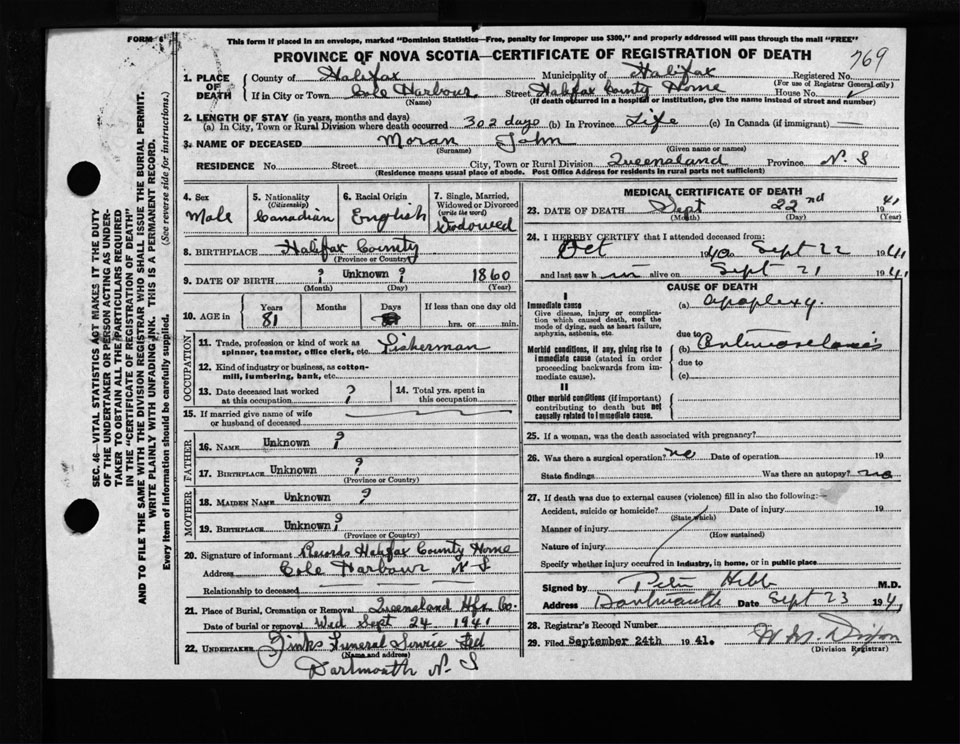 FORM 6
This form if placed in an envelope, marked "Dominion Statistics—Free, penalty for improper use $300," and properly addressed will pass through the mail "FREE"
PROVINCE OF NOVA SCOTIA—CERTIFICATE OF REGISTRATION OF DEATH
769
1. PLACE OF DEATH
County of Halifax Municipality of Halifax Registered No.
(For use of Registrar General only)
If in City or Town Cole Harbour Street Halifax County Home House No.
(Name) (If death occurred in a hospital or institution, give the name instead of street and number)
2. LENGTH OF STAY (in years, months and days)
(a) In City, Town or Rural Division where death occurred 302 days (b) In Province Life (c) In Canada (if immigrant) —
3. NAME OF DECEASED Moran John
(Surname) (Given name or names)
RESIDENCE No. Street City, Town or Rural Division Queensland Province N. S
(Residence means usual place of abode. Post Office Address for residents in rural parts not sufficient)
4. Sex Male
5. Nationality (Citizenship) Canadian
6. Racial Origin English
7. Single, Married, Widowed or Divorced (write the word) Widowed
8. BIRTHPLACE Halifax County
(Province or Country)
9. DATE OF BIRTH ? Unknown ? 1860
(Month) (Day) (Year)
10. AGE in Years 81 Months Days If less than one day old
hrs. or min.
OCCUPATION
11. Trade, profession or kind of work as spinner, teamster, office clerk, etc. Fisherman
12. Kind of industry or business, as cotton-mill, lumbering, bank, etc.
13. Date deceased last worked at this occupation ?
14. Total yrs. spent in this occupation
15. If married give name of wife or husband of deceased
FATHER
16. NAME Unknown ?
17. BIRTHPLACE Unknown ?
(Province or Country)
MOTHER
18. MAIDEN NAME Unknown ?
19. BIRTHPLACE Unknown ?
(Province or Country)
20. Signature of informant Records Halifax County Home
Address Cole Harbour N S
Relationship to deceased
21. Place of Burial, Cremation or Removal Queensland Hfx Co.
Date of burial or removal Wed Sept 24 1941
22. UNDERTAKER Zinks Funeral Service Ltd
(Name and address)
Dartmouth N. S
MEDICAL CERTIFICATE OF DEATH
23. DATE OF DEATH Sept 22nd 1941
(Month) (Day) (Year)
24. I HEREBY CERTIFY that I attended deceased from:
Oct 1940 to Sept 22 1941
and last saw h im alive on Sept 21 1941
CAUSE OF DEATH
I
Immediate cause
Give disease, injury or complication which caused death, not the mode of dying, such as heart failure, asphyxia, asthenia, etc.
(a) apoplexy.
due to
Morbid conditions, if any, giving rise to immediate cause (stated in order proceeding backwards from immediate cause).
(b) Arteriosclerosis
due to
(c)
II
Other morbid conditions (if important) contributing to death but not causally related to immediate cause.
25. If a woman, was the death associated with pregnancy?
26. Was there a surgical operation? no Date of operation 19
State findings Was there an autopsy? no
27. If death was due to external causes (violence) fill in also the following:—
Accident, suicide or homicide? Date of injury 19
(State which)
Manner of injury
(How sustained)
Nature of injury
Specify whether injury occurred in industry, in home, or in public place
Signed by Peter Hebb M.D.
Address Dartmouth Date Sept 23 1941
28. Registrar's Record Number
29. Filed September 24th 1941. W. M. Dixon
(Division Registrar)
SEC. 46—VITAL STATISTICS ACT MAKES IT THE DUTY
OF THE UNDERTAKER OR PERSON ACTING AS UNDER-
TAKER TO OBTAIN ALL THE PARTICULARS REQUIRED
IN THE "CERTIFICATE OF REGISTRATION OF DEATH"
AND TO FILE THE SAME WITH THE DIVISION REGISTRAR WHO SHALL ISSUE THE BURIAL PERMIT.
WRITE PLAINLY WITH UNFADING INK. THIS IS A PERMANENT RECORD.
Every item of information should be carefully supplied. (See reverse side for instructions.)